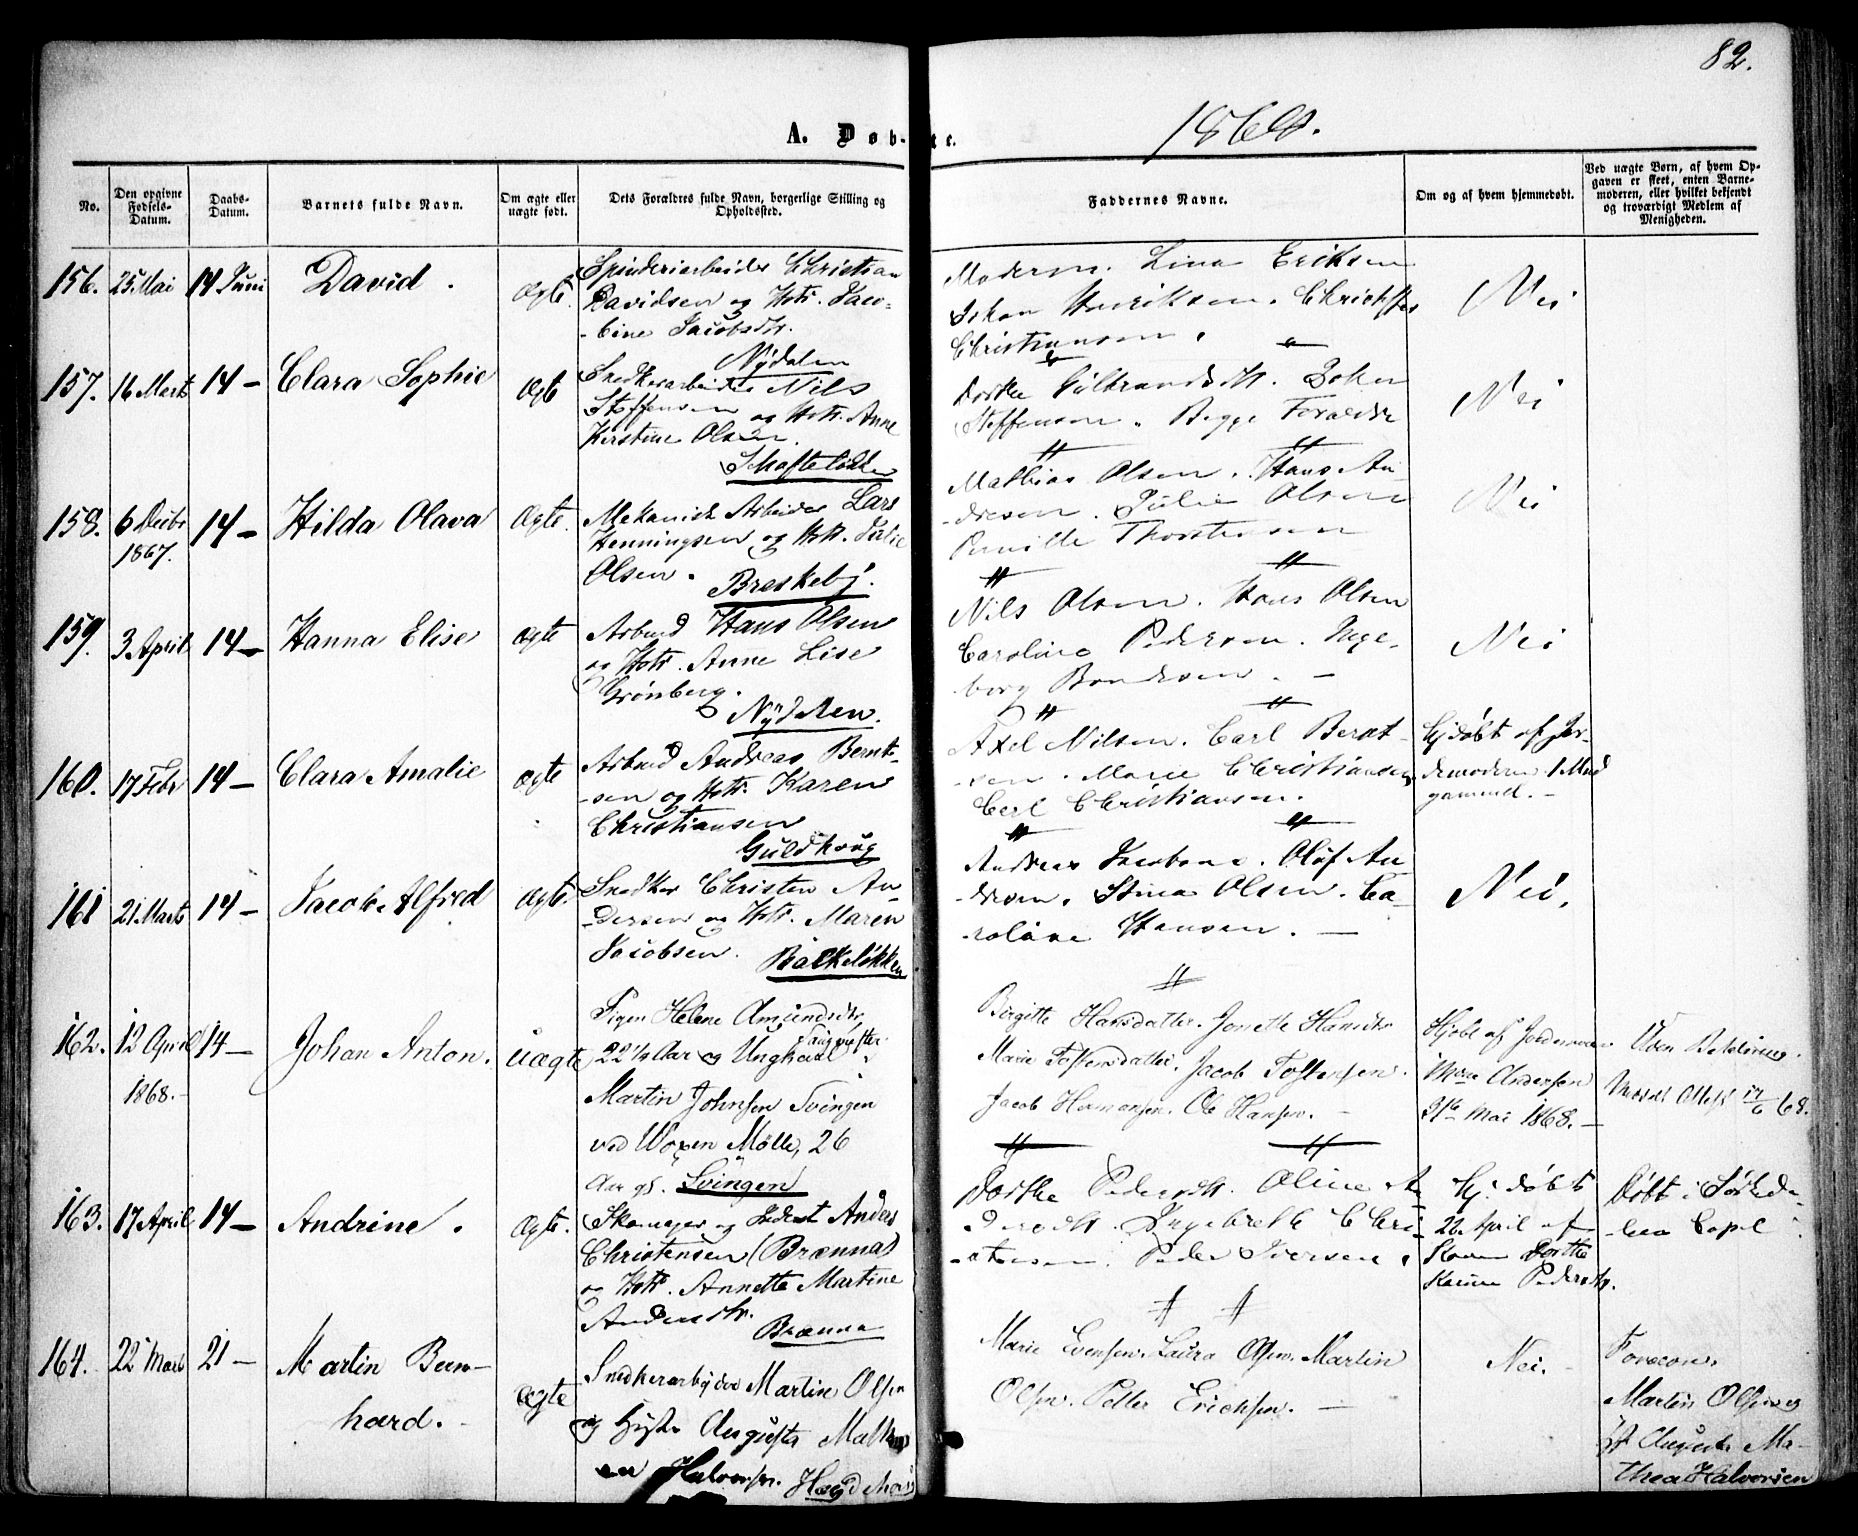 82.
A. Døb-te.
1868.
No.
Den opgivne Fødsels-Datum.
Daabs-Datum.
Barnets fulde Navn.
Om ægte eller uægte født.
Dets Forældres fulde Navn, borgerlige Stilling og Opholdssted.
Faddernes Navne.
Om og af hvem hjemmedøbt.
Ved uægte Børn, af hvem Opgaven er skeet, enten Barnemoderen, eller hvilket bekjendt og troværdigt Medlem af Menigheden.
156. 25 Mai 14 Juni David. Ægte.
Spinderiarbeider Christian
Davidsen og Hstr. Jaco-
-bine Jacobsdtr.
Nydalen
Moderen. Lina Eriksen
Johan Henriksen. Christoffer
Christiansen.
Nei
157. 16 Marts 14 - Clara Sophie Ægte
Snedkerarbeider Nils
Steffensen og Hstr. Anne
Kerstine Olsen.
Schafteløkken
Dorthe Gulbrandsdtr. Johan
Steffensen. Begge Forældre
Nei
158. 6 Decbr 1867. 14 - Hilda Olava Ægte.
Mekanisk Arbeider Lars
Henningsen og Hstr. Julie
Olsen.
Breskeby.
Mathias Olsen. Hans An-
-dresen. Julie Olsen
Pernille Thorstensen
Nei
159. 3 April 14 - Hanna Elise Ægte
Arbmd Hans Olsen
og Hstr. Anne Lise
Grønberg.
Nydalen.
Nils Olsen. Hans Olsen
Caroline Pedersen. Inge-
-borg Bondesen. -
Nei
160. 17 Febr 14 - Clara Amalie Ægte
Arbmd Andreas Bernt-
-sen og Hstr. Karen
Christiansen
Guldhaug
Axel Nilsen. Carl Bernt-
-sen. Marie Christiansen,
Carl Christiansen.
Hj døbt af Jor-
demoderen 1 Mnd
gammel. -
161 21 Marts 14 - Jacob Alfred Ægte.
Snedker Christen An-
-dersen og Hstr. Maren
Jacobsen.
Balkeløkken
Andreas Jacobsen. Oluf An-
-dresen. Stina Olsen. Ca-
-roline Hansen. -
Nei.
162. 12 April 1868. - 14 - Johan Anton. uægte
Pigen Helene Amundsdtr,
22 ½ Aar og Ungkarl
Martin Johnsen Svingen
ved Woxen Mølle, 26
Aar gl. Svingen
Birgitte Hansdatter. Jonette Hansdtr
Marie Tostensdatter. Jacob Tostensen.
Jacob Hermansen. Ole Hansen. -
Hjdøbt af Jordemoder
Andersen
31te Mai 1868. -
163. 17 April 14 - Andrine. Ægte.
Skomager og Inderst Anders
Christensen (Brænna)
og Hstr. Annette Martine
Andersdtr.
Brænna
Dorthe Pedersdtr. Oline An-
dersdtr. Ingebreth Chri-
-stensen. Peder Iversen.
Hj. døbt
22 April af
Karen Dorthe
Karine Pedersdtr.
Døbt i Sørkeda-
-lens Capel
164. 22 Marts 21 - Martin Bern-
hard. Ægte
Snedkerarbejder Martin Olsen
og Hustru Augusta Mathea
Halvorsen. Hægdehaug
Marie Evensen. Laura Olsen. Martin
Olsen. Petter Erichsen. -
Nei. -
Martin Olsen og
Augusta Ma-
thea Halvorsen